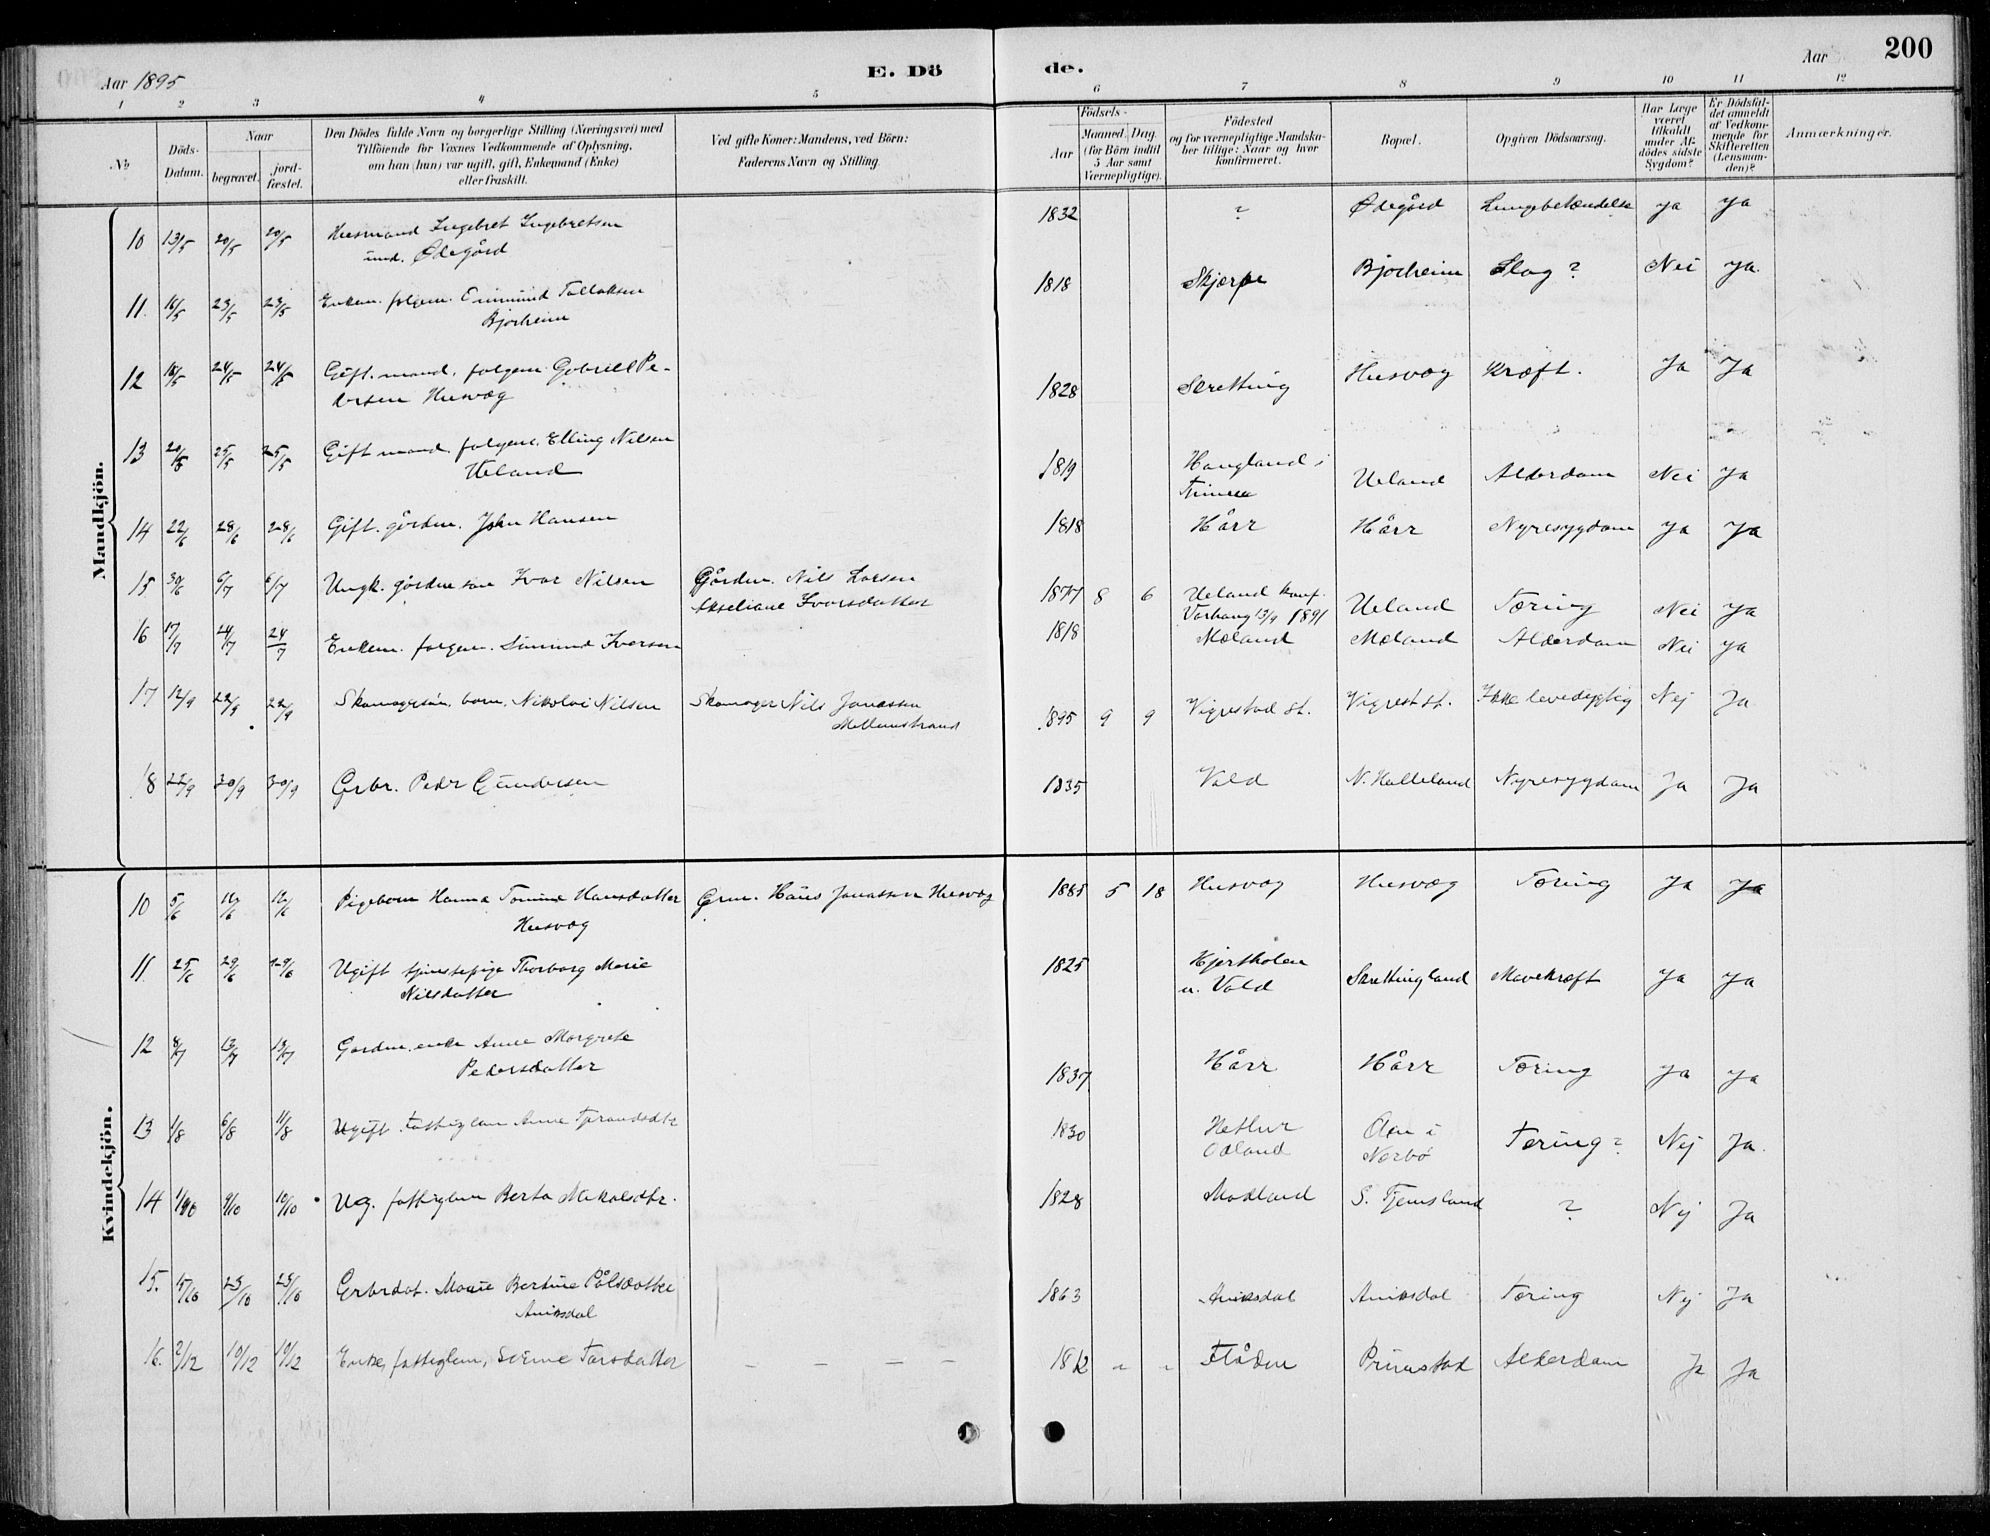 Aar 1895
E. Dö
de.
Aar
200
1 2 3 4 5 6 7 8 9 10 11 12
No
Döds-Datum.
Naar
begravet.
jord-fæstet.
Den Dödes fulde Navn og borgerlige Stilling (Næringsvei) med
Tilföiende for Voxnes Vedkommende af Oplysning,
om han (hun) var ugift, gift, Enkemand (Enke)
eller fraskilt.
Ved gifte Koner: Mandens, ved Börn:
Faderens Navn og Stilling.
Födsels-
Aar
Maaned. Dag.
(for Börn indtil
5 Aar samt
Værnepligtige).
Födested
og for værnepligtige Mandska-
ber tillige: Naar og hvor
konfirmeret.
Bopæl.
Opgiven Dödsaarsag.
Har Læge
været
tilkaldt
under Af-
dödes sidste
Sygdom?
Er Dödsfal-
det anmeldt
af Vedkom-
mende for
Skifteretten
(Lensman-
den)?
Anmærkninger.
Mandkjön.
10 13/5 20/5 20/5 Husmand Ingebret Ingebretsen 1832 ? Ødegård Lungebetændelse ja ja
und. Ødegård
11. 16/5 23/5 23/5 Enkem. folgem. Tollaksen 1818 Skjerpe Bjorheim Slag? Nei ja.
Bjorheim
12 18/5 24/5 24/5 Gift. mand. folgem. Gabriel Pe- 1828 Skretting Husvæg Kræft. Ja Ja
dersen Husvæg
13 20/5 25/5 25/5 Gift mand. folgem. Elling Nilsen 1819 Haugland i Ueland Alderdom Nei ja
Ueland
14 22/6 28/6 28/6 Gift. gårdm. John Hansen 1818 Hårr Hårr Nyresygdom ja Ja
15 30/6 6/7 6/7 Ungk. gårdmsøn Ivar Nilsen Gårdm. Nils Larsen 1877 8 6 Ueland konf. Ueland Tæring Nei ja
Akseliane Ivarsdatter Varhaug 13/9 1891
16 17/7 24/7 24/7 Enkem. folgem. Simund Iversen 1818 Mæland Mæland Alderdom Nei ja
17 12/9 22/9 22/9 Skomagersøn, barn, Nikolai Nilsen Skomager Nils Jonassen 1895 9 9 Vigrestad st. Vigrest st. Ikke levedygtig Nej Ja
Mellemstrand
18 22/9 30/9 30/9 Grbr. Peder Gundersen 1835 Vold N. Halleland Nyresygdom Ja Ja
Kvindekjön.
10 5/6 12/6 12/6 Pigebarn Hanna Tomine Hansdatter Grm. Hans Jonassen Husvæg 1885 5 18 Husvæg Husvæg Tæring Ja Ja
Husvæg
11 25/6 29/6 29/6 Ugift tjenestepige Thorborg Marie 1825 Hjerthølen Skrettingland Mavekræft ja ja
Nilsdatter u. Vold
12 8/7 13/7 13/7 Gardm. enke Anne Margrete 1837 Hårr Hårr Tæring ja ja
Pedersdatter
13 1/8 6/8 11/8 Ugift. fattiglem Anne Tjerandsdtr 1830 Hetlur Øen i Tæring? Nej Ja.
Odland Nærbø
14 1/10 9/10 10/10 Ug. fattiglem Berta Mikalsdtr. 1828 Modland S. Tjemsland ? Nej Ja
15. 15/10 23/10 23/10 Grbrdat. Marie Bertine Pålsdatter 1863 Aniksdal Aniksdal Tæring Nej Ja
Aniksdal
16. 2/12 10/12 10/12 Enke, fattiglem, Serine Tarsdatter – – – – 1812 " " Flåden Prinstad Alderdom Ja Ja